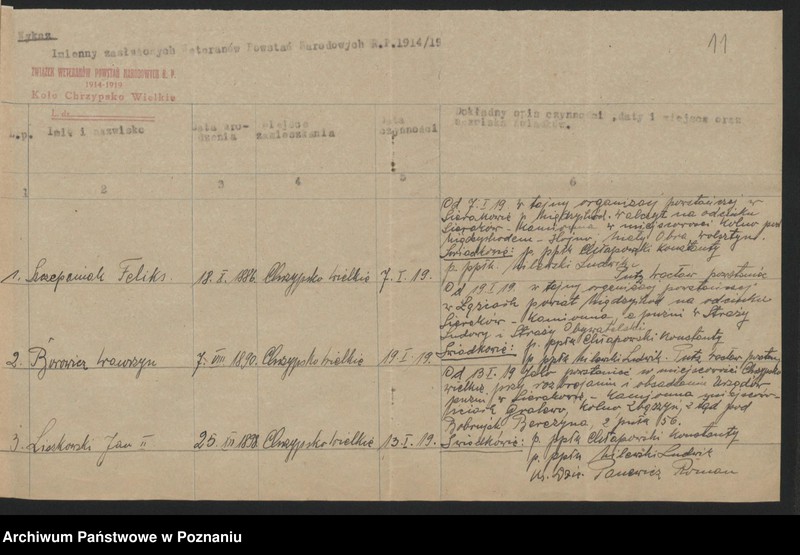 Wykaz
Imienny zasłużonych Weteranów Powstań Narodowych R.P.1914/19
11
ZWIĄZEK WETERANÓW POWSTAŃ NARODOWYCH R. P.
1914-1919
Koło Chrzypsko Wielkie
L. dz.
L.p. Imię i nazwisko Data uro- Miejsce Data Dokładny opis czynności ,daty i miejsca oraz
dzenia zamieszkania czynności nazwiska świadków.
1 2 3 4 5 6
1. Szczepaniak Feliks. 18. X. 1886. Chrzypsko Wielkie 7. I. 19.
Od 7. I 19. w tajny organizacji powstańczej w
Sierakowie p. Międzychód. walczył na odcinku
Sieraków - Kamionna w miejscowości Kolno pod
Międzychodem - Wolsztyn.
Świadkowie: p. ppłk Chłapowski Konstanty
p. ppłk. Milewski Ludwik
2. Borowicz Wawrzyn 7. VIII 1890. Chrzypsko Wielkie 19. I. 19.
Od 19. I 19. w tajny organizacji powstańczej
w powiat Międzychód na odcinku
Sieraków - Kamionna, a później w Straży
Ludowy i Straży Obywatelski
Świadkowie: p. ppłk Chłapowski Konstanty
p. ppłk Milewski Ludwik.
3. Liskowski Jan II 25. VI 1898. Chrzypsko Wielkie 13. I. 19.
Od 13. I 19 Jako powstaniec w miejscowości Chrzypsko
Wielkie przy rozbrojaniu i obsadzeniu urzędów
w Sierakowie, - Kamionna miejscow-
Gralewo, Kolno Zbąszyń, z tąd pod
56.
Świadkowie: p. ppłk Chłapowski Konstanty
p. ppłk Milewski Ludwik
Panewicz Roman
Archiwum Państwowe w Poznaniu